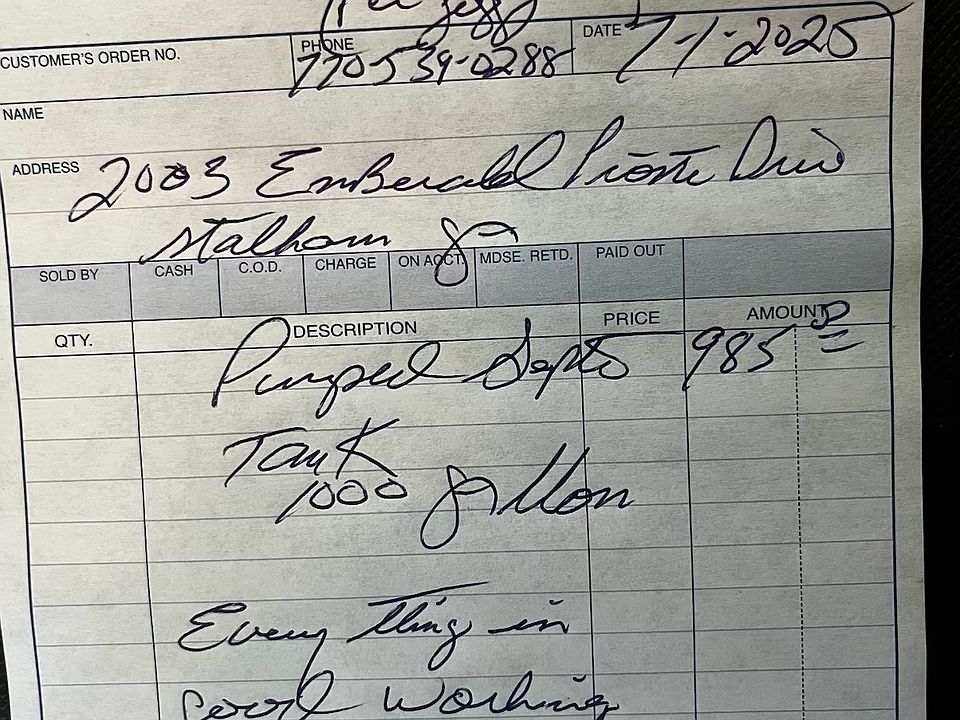 CUSTOMER'S ORDER NO. PHONE 770-539-0288 DATE 7-1-2025
NAME
ADDRESS 2003 EmBerald Pionte Driv
stalham ga
SOLD BY CASH C.O.D. CHARGE ON ACCT. MDSE. RETD. PAID OUT
QTY. DESCRIPTION PRICE AMOUNT
Pumped Septo 985 00
Tank
1000 gallon
Every thing in
good working